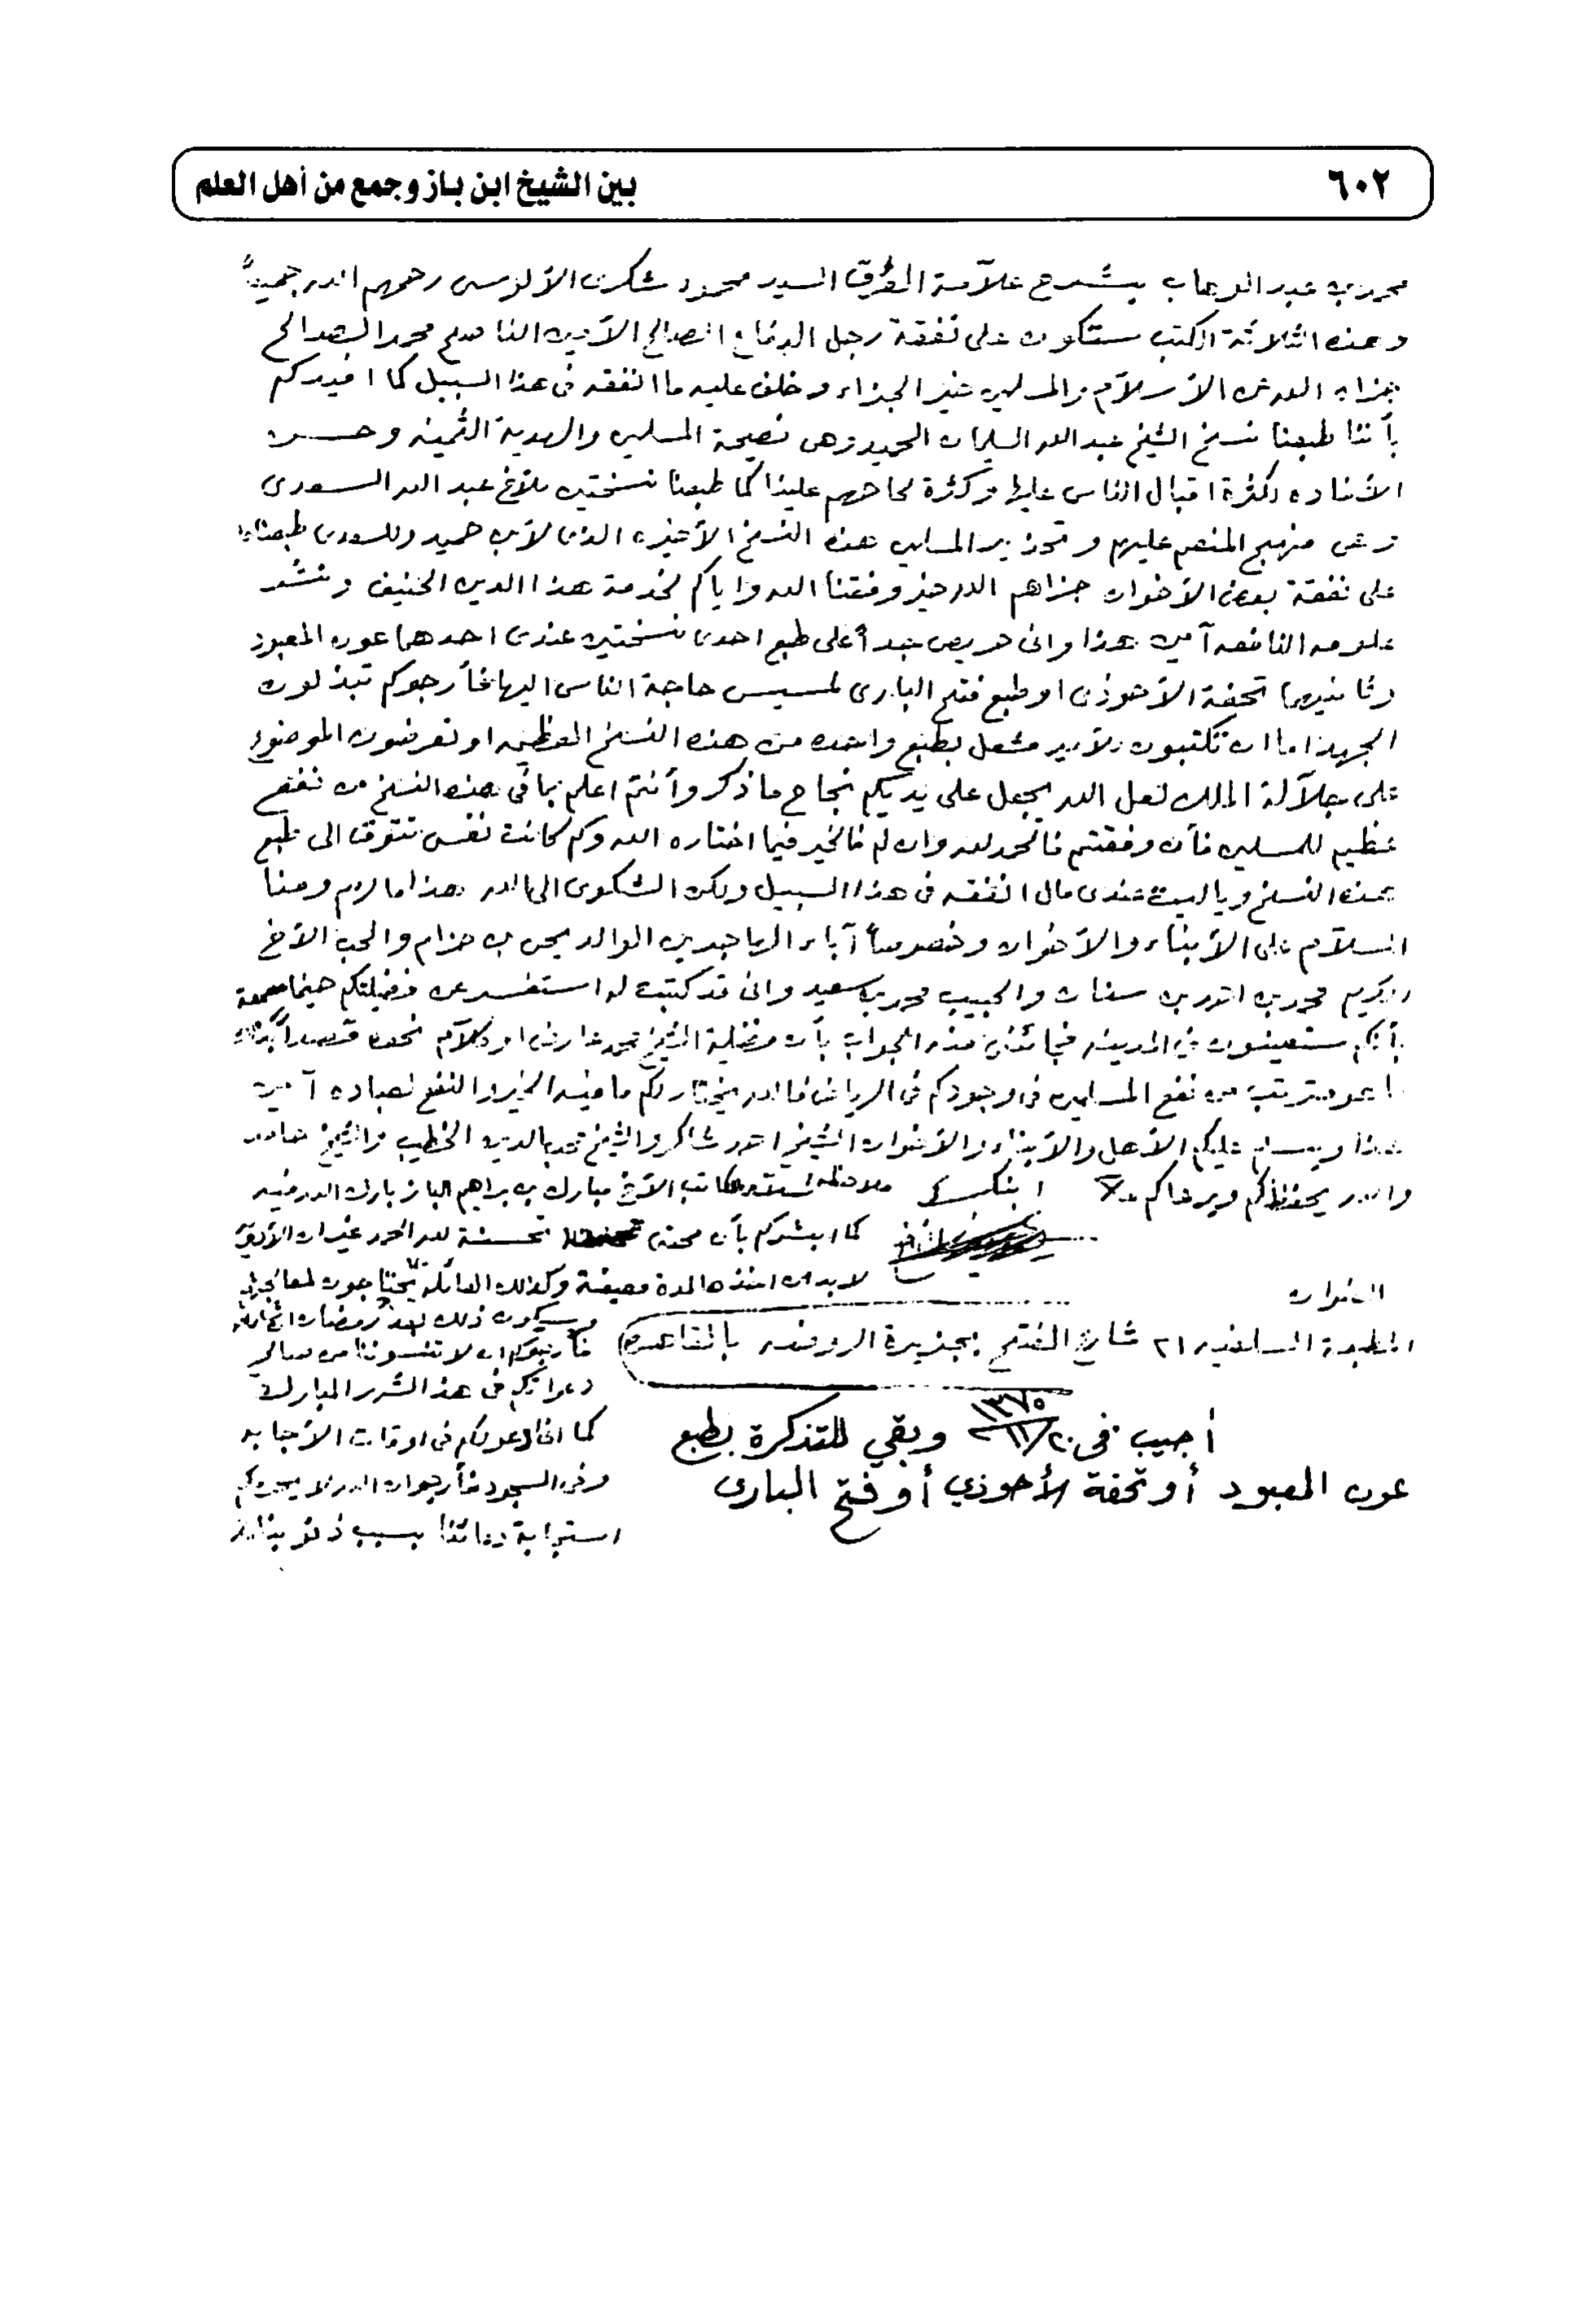 ٦٠٢
بين الشيخ ابن باز وجمع من أهل العلم
محمد بن عبد الوهاب بشرح علآمة العراق السيد محمود شكرى الألوسى رحمهم الله جميعاً
وهذه الثلاثة الكتب ستكون على نفقة رجل الدفاع الصالح الأمين الناصح محمد الصالح
جزاه الله عن الأسلام والمسلمين خير الجزاء وخلف عليه ما انفقه فى هذا السبيل كما افيدكم
بأننا طبعنا نسخ الشيخ عبد الله السليمان الحميد وهى نصيحة المسلمين والهدية الثمينه وحسن
الأفاده لكثرة اقبال الناس عليها وكثرة لحاحهم علينا كما طبعنا نسختين للأخ عبد الله السعدى
وهى منهج المنعم عليهم وتحذير المسلمين هذه النسخ الأخيره الذى لآبن حميد وللسعدى طبعناها
على نفقة بعض الأخوان جزاهم الله خير وفقنا الله واياكم لخدمة هذا الدين الحنيف ونشر
علومه النافعه آمين هذا وانى حريص جداً على طبع احدى نسختين عندى احدهما عون المعبود
وثانيهما تحفة الأحوذى او طبع فتح البارى لمسيس حاجة الناس اليها فأرجوكم تبذلون
الجهد اما ان تكتبون للأمير مشعل بطبع واحده من هذه النسخ العظيمه او تعرضون الموضوع
على جلآلة الملك لعل الله يجعل على يديكم نجاح ما ذكر وأنتم اعلم بما فى هذه النسخ من نفع
عظيم للمسلمين فأن وفقتم فالحمد لله وان لم فالخير فيما اختاره الله وكم كانت نفسى تتوق الى طبع
هذه النسخ وياليت عندى مال انفقه فى هذا السبيل ولكن الشكوى الى الله هذا ما لزم ومنا
السلآم على الأبناء والأخوان وخصوصاً آباء الماجدين الوالد يحيى بن حزام والمحب الأخ
الكريم محمد بن احمد بن سنان والحبيب محمد بن سعيد وانى قد كتبت له استفسر عن فضيلتكم حينما سمعته
بأنكم ستعينون فى المدينه فجائنى منه الجواب بأن فضيلة الشيخ محمد عارض او كلآم نحوه قصداً
ما هو مترتب من نفع المسلمين فى وجودكم فى الرياض فالله يختار لكم ما فيه الخير والنفع لعباده آمين
هذا ويسلم عليكم الأهل والأبناء والأخوان الشيخ احمد شاكر والشيخ محب الدين الخطيب والشيخ حامد
والله يحفظكم ويرعاكم ابنكم
ملاحظه كاتب الأخ مبارك بن براهيم الباز بارك الله فيه
كما ابشركم بأن صحتى تحسنت لله الحمد غير ان
لا بد من اخذها لمدة معينة وكذلك العائله يحتاجون لمعالجه
وسيكون ذلك بعد رمضان
فأرجوكم ان لا تنسونا من صالح
دعواتكم فى هذ الشهر المبارك
كما اننا ندعو لكم فى اوقات الأجابه
وفى السجود فأرجو ان الله لا يحرمكم
استجابة دعائنا بسبب ذنوبنا
العنوان
المطبعة السلفيه ٢١ شارع الفتح بجزيرة الروضه بالقاهرة
أجيب فى ٢٠/١١/١٣٧٥ وبقي للتذكرة بطبع
عون المعبود أو تحفة الأحوذي أو فتح البارى